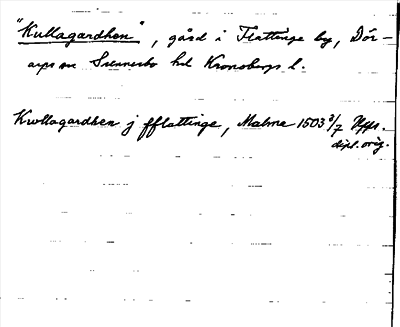 "Kullagardhen", gård i Flattinge by, Dör-
arps sn Sunnerbo hd Kronobergs l.
Kwllagardhen j fflattinge, Malmø 1503 3/7 Upps.
dipl. orig.